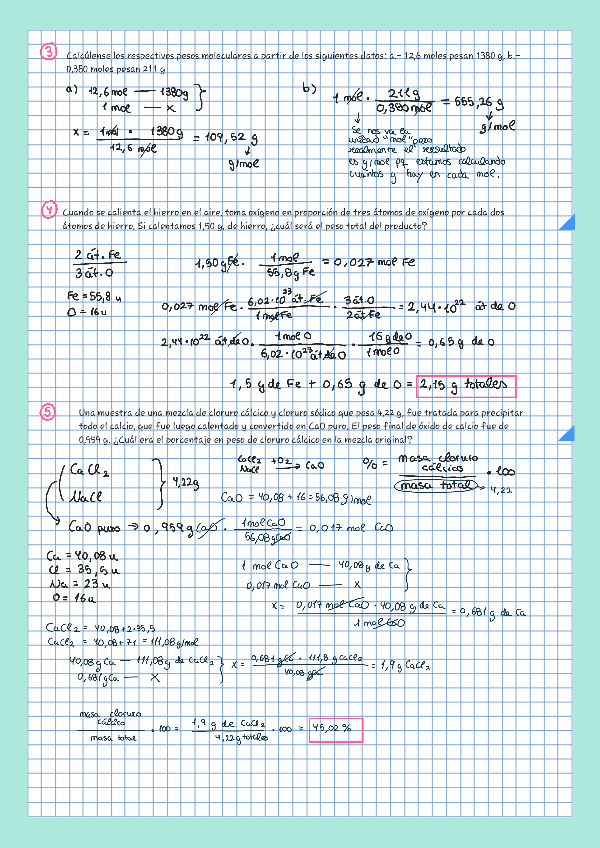 3 Calcúlense los respectivos pesos moleculares a partir de los siguientes datos: a.- 12,6 moles pesan 1380 g, b.-
0,380 moles pesan 211 g
a) 12,6 mol — 1380g
1 mol — x
x = 1 mol · 1380g / 12,6 mol = 109,52 g
g/mol
b) 1 mol · 211g / 0,380 mol = 555,26 g
g/mol
se nos va la
unidad "mol" pero
realmente el resultado
es g/mol pq estamos calculando
cuantos g hay en cada mol.
4 Cuando se calienta el hierro en el aire, toma oxígeno en proporción de tres átomos de oxígeno por cada dos
átomos de hierro. Si calentamos 1,50 g, de hierro, ¿cuál será el peso total del producto?
2 át. Fe / 3 át. O
Fe = 55,8 u
O = 16u
1,50 g Fe · 1 mol / 55,8 g Fe = 0,027 mol Fe
0,027 mol Fe · 6,02·10²³ át. Fe / 1 mol Fe · 3 át. O / 2 át. Fe = 2,44·10²² át de O
2,44·10²² át. de O · 1 mol O / 6,02·10²³ át de O · 16 g de O / 1 mol O = 0,65 g de O
1,5 g de Fe + 0,65 g de O = 2,15 g totales
5 Una muestra de una mezcla de cloruro cálcico y cloruro sódico que pesa 4,22 g, fue tratada para precipitar
todo el calcio, que fue luego calentado y convertido en CaO puro. El peso final de óxido de calcio fue de
0,959 g. ¿Cuál era el porcentaje en peso de cloruro cálcico en la mezcla original?
CaCl₂
NaCl
4,22g
CaCl₂
NaCl +O₂ → CaO
% = masa cloruro cálcico / masa total · 100
→ 4,22
CaO = 40,08 + 16 = 56,08 g/mol
CaO puro → 0,959 g CaO · 1 mol CaO / 56,08 g CaO = 0,017 mol CaO
Ca = 40,08 u
Cl = 35,5 u
Na = 23 u
O = 16 u
1 mol CaO — 40,08 g de Ca
0,017 mol CaO — x
x = 0,017 mol CaO · 40,08 g de Ca / 1 mol CaO = 0,681 g de Ca
CaCl₂ = 40,08 + 2·35,5
CaCl₂ = 40,08 + 71 = 111,08 g/mol
40,08 g Ca — 111,08 g de CaCl₂
0,681 g Ca — x
x = 0,681 g Ca · 111,8 g CaCl₂ / 40,08 g Ca = 1,9 g CaCl₂
masa cloruro cálcico / masa total · 100 = 1,9 g de CaCl₂ / 4,22 g totales · 100 = 45,02 %